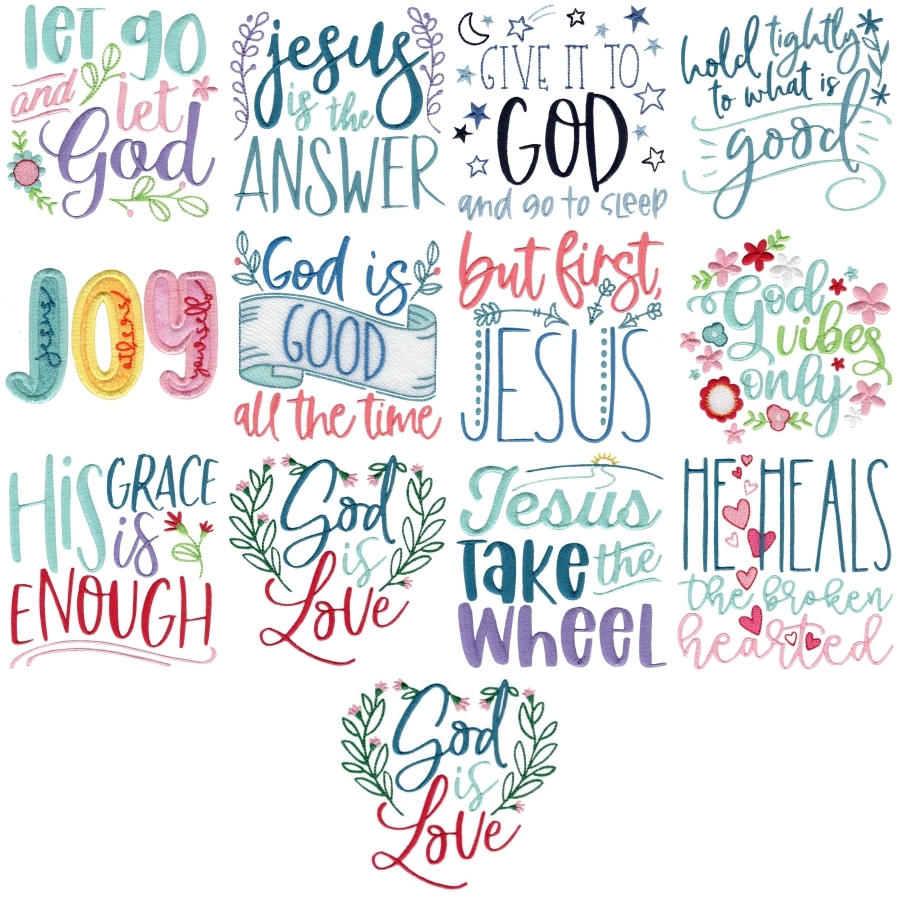 let go
and let
God
jesus
is the
ANSWER
GIVE IT TO
GOD
and go to sleep
hold tightly
to what is
good
JOY
jesus
others
yourself
God is
GOOD
all the time
but first,
JESUS
God
vibes
only
His GRACE
is
ENOUGH
God
is
Love
Jesus
Take the
Wheel
HE HEALS
the broken
hearted
God
is
Love